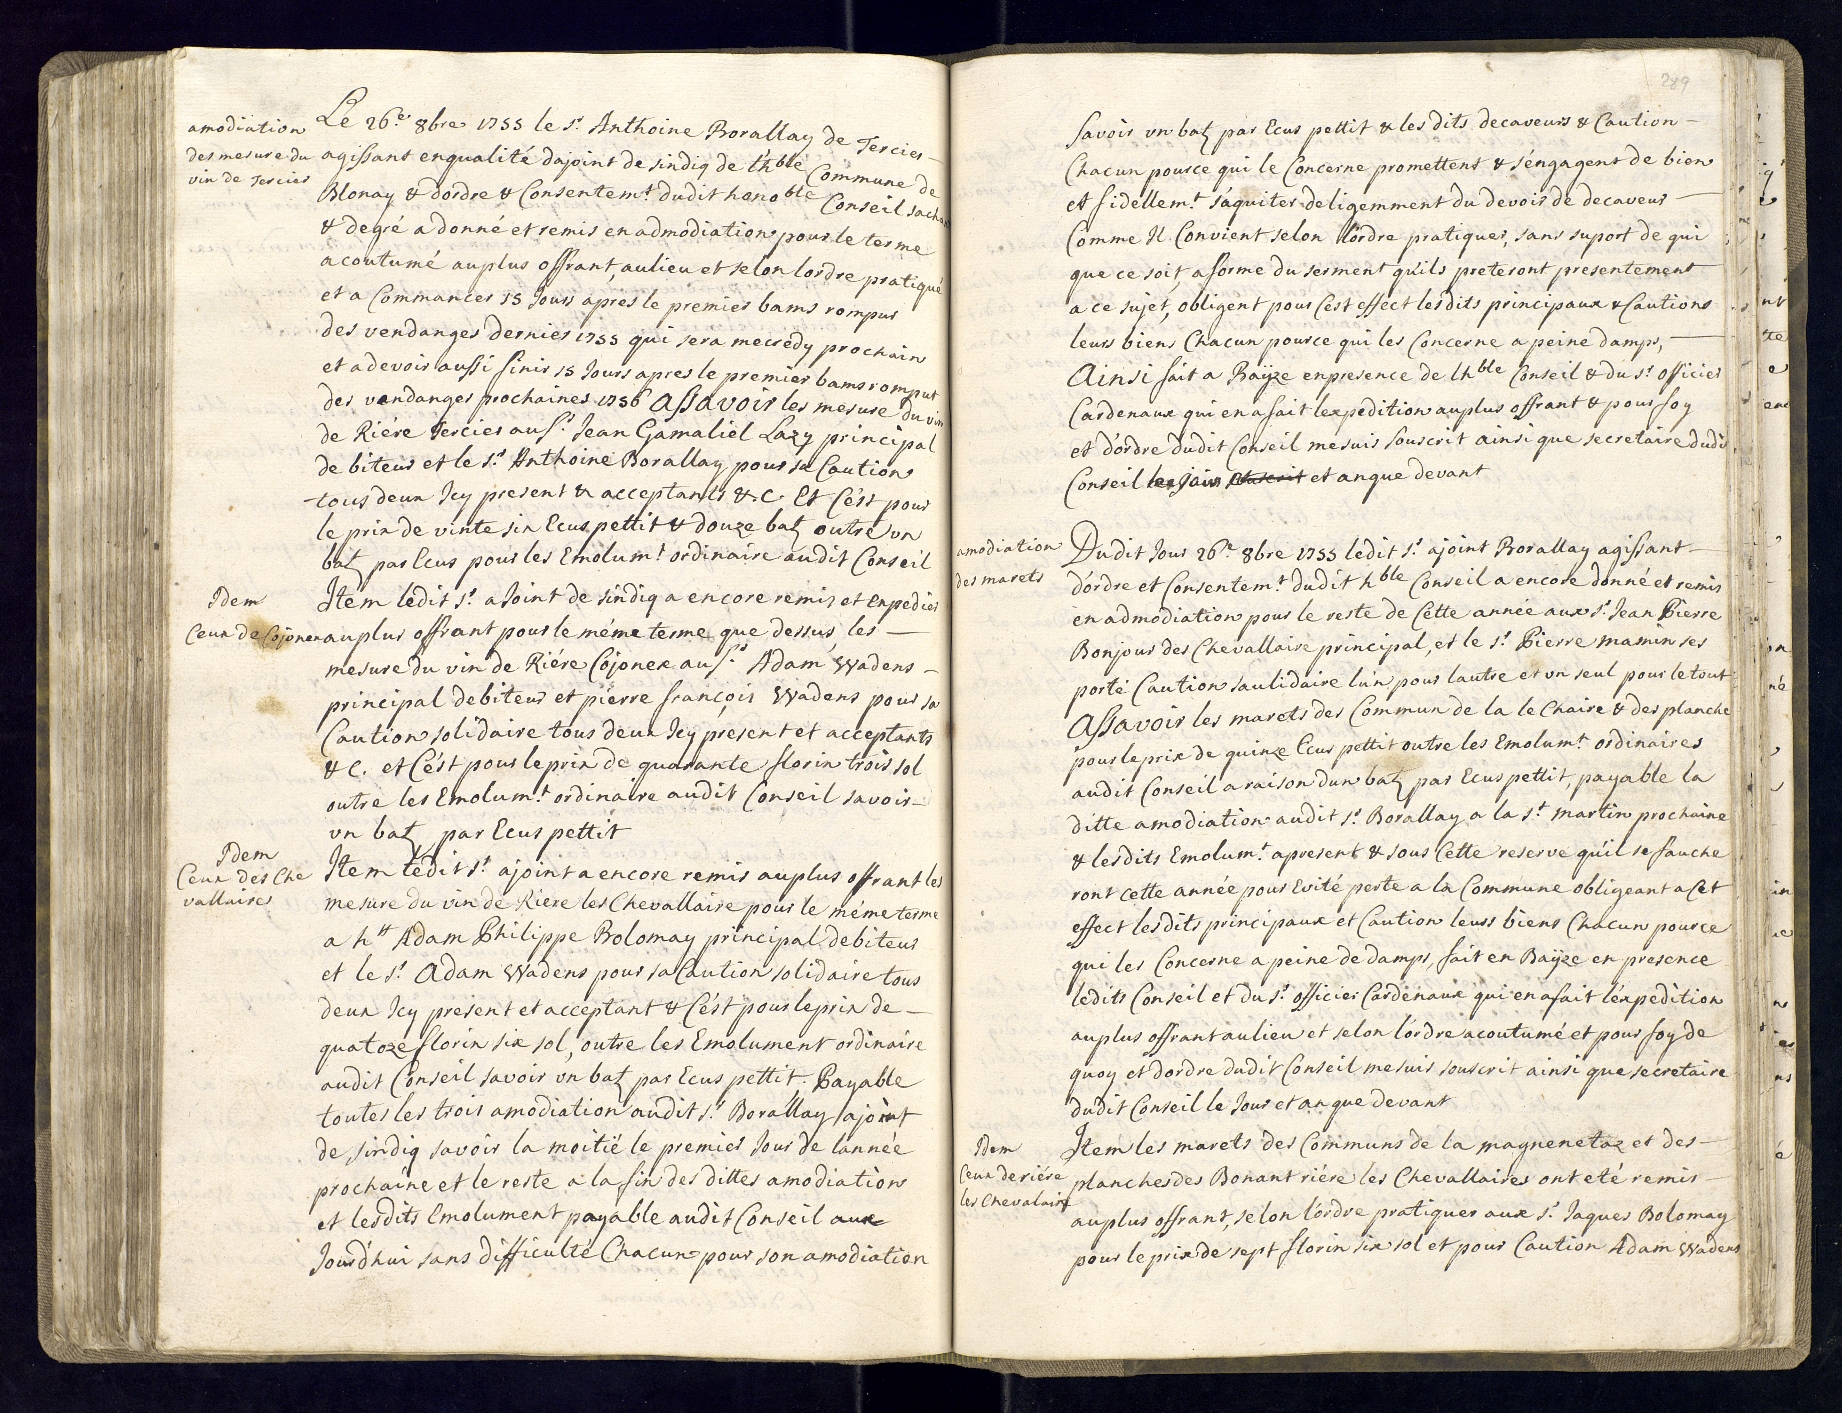 amodiation
des mesure du
vin de Tercier
Le 26.e 8bre 1755 le s.r Anthoine Borallay de Tercier
agissant enqualité dajoint de sindiq de lh.ble Commune de
Blonay & dordre & Consentem.t dudit honoble Conseil sachant
& degré a donné et remis en admodiation pour le terme
acoutumé au plus offrant, aulieu et selon lordre pratiqué
et a Commancer 15 Jours apres le premier bams rompus
des vendanges dernier 1755 qui sera mecredy prochain
et adevoir aussi finir 15 Jours apres le premier bams romput
des vendanges prochaines 1756 Assavoir les mesure du vin
de Riére Tercier au s.r Jean Gamaliel Lazy principal
de biteur et le s.r Anthoine Borallay pour sa Caution
tous deux Icy present & acceptants &.C. Et C'ést pour
le prix de vinte six Ecus pettit & douze batz outre un
batz par Ecus pour les Emolum.t ordinaire audit Conseil
Idem
Ceux de Cojonex
Item ledit s.r a Joint de sindiq a encore remis et Expedier
auplus offrant pour le méme terme que dessus, les
mesure du vin de Riére Cojonex au s.r Adam Wadens
principal debiteur et piérre françois Wadens pour sa
Caution solidaire tous deux Icy present et acceptants
& C. et C'ést pour le prix de quarante florin trois sol
outre les Emolum.t ordinaire audit Conseil savoir
un batz par Ecus pettit
Idem
Ceux des Che
vallaires
Item ledit s.r ajoint a encore remis auplus offrant les
mesure du vin de Riere les Chevallaire pour le méme terme
a h.tt Adam Philippe Bolomay principal debiteur
et le s.r Adam Wadens pour sa Caution solidaire tous
deux Icy present et acceptant & C'ést pour le prix de
quatoze florin six sol, outre les Emolument ordinaire
audit Conseil savoir un batz par Ecus pettit. Payable
toutes les trois amodiation audit s.r Borallay ajoint
de sindiq savoir la moitié le premier Jour de lannée
prochaine et le reste a la fin des dittes amodiation
et lesdits Emolument payable audit Conseil aux
Jourd'hui sans difficulté Chacun pour son amodiation
289
savoir un batz par Ecus pettit & les dits decaveurs & Caution
Chacun pource qui le Concerne promettent & s'éngagent de bien
et fidellem.t s'áquiter deligemment du devoir de decaveur
Comme Il Convient selon l'órdre pratiquer, sans suport de qui
que ce soit, a forme du serment quils preteront presentement
a ce sujet, obligent pour Cest effect lesdits principaux & Cautions
leurs biens Chacun pource qui les Concerne a peine damps,
Ainsi fait a Baÿze enpresence de lh.ble Conseil & du s.r officier
Cardenaux qui en a fait lexpedition auplus offrant & pour foy
et dórdre dudit Conseil me suis souscrit ainsi que secretaire dudit
Conseil les Jour et anque devant
amodiation
des marets
Dudit Jour 26.e 8bre 1755 ledit s.r ajoint Borallay agissant
dórdre et Consentem.t dudit h.ble Conseil a encore donné et remis
en admodiation pour le reste de Cette année aux s.r Jean Pierre
Bonjour des Chevallaire principal, et le s.r Pierre mamin ses
porté Caution saulidaire lún pour lautre et un seul pour le tout
Assavoir les marets des Commun de la le Chaire & des planche
pour le prix de quinze Ecus pettit outre les Emolum.t ordinaires
audit Conseil a raison dun batz par Ecus pettit, payable la
ditte amodiation audit s.r Borallay a la s.t martin prochaine
& lesdits Emolum.t apresent & sous Cette reserve qu'il se fauche
ront cette année pour Evité perte a la Commune obligeant a Cet
effect lesdits principaux et Caution leurs biens Chacun pource
qui les Concerne a peine de damps, fait en Baÿze en presence
ledits Conseil et du s.r officier Cardenaux qui en a fait léxpedition
auplus offrant aulieu et selon lórdre acoutumé et pour foy de
quoy et dordre dudit Conseil me suis souscrit ainsi que secretaire
dudit Conseil le Jour et anque devant
Idem
Ceux de riére
les Chevalaire
Item les marets des Communs de la magnenetaz et des
planches des Bonant riére les Chevallaires ont eté remis
auplus offrant, selon lórdre pratiquer aux s.r Jaques Bolomay
pour le prix de sept florin six sol et pour Caution Adam Wadens